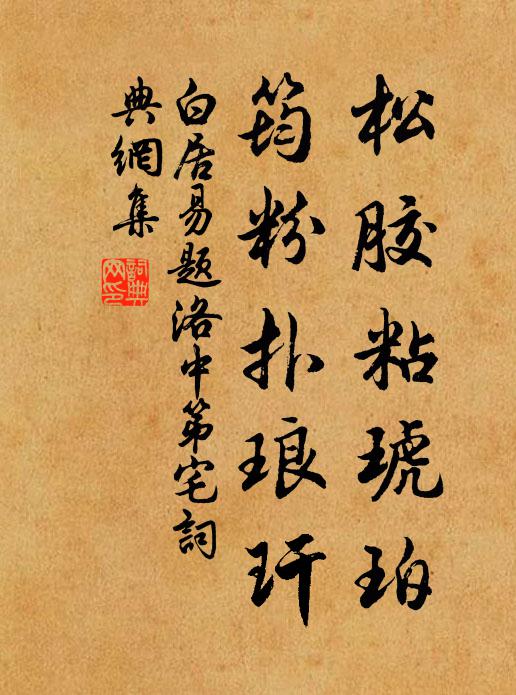 松胶粘琥珀
筠粉扑琅玕
白居易题洛中第宅詞
典網集
詞典网印